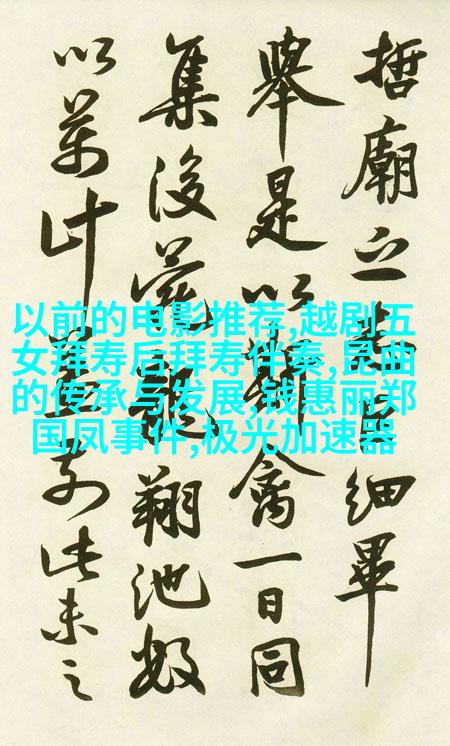 哲廟之細畢
舉是以禽一日同
集後苑龍翔池數
以萬計前此未之
以前的电影推荐,越剧五
女拜寿后拜寿伴奏,昆曲
的传承与发展,钱惠丽郑
国凤事件,极光加速器